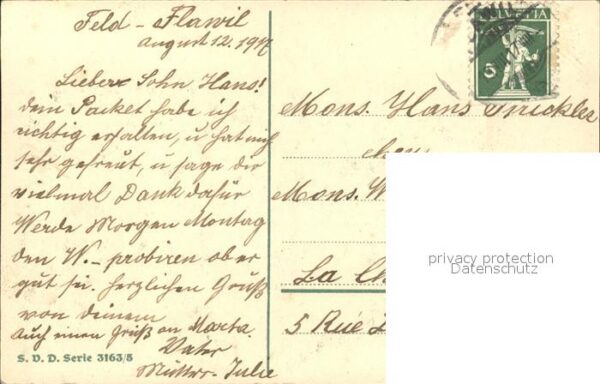 Feld - Flawil
August 12. 19
Lieber Sohn Hans!
dein Packet habe ich
richtig erhalten, u hat mich
sehr gefreut, u sage dir
vielmal Dank dafür
Werde Morgen Montag
den W.- probiren ob er
gut sei. herzlichen Gruß
von deinem
Auch einen Gruß an Marta.
Vater
Mutter - Julie
S. V. D. Serie 3163/5
HELVETIA
5
Mons. Hans Trickler
chez
Mons. W
La Ch
5 Rue
privacy protection
Datenschutz